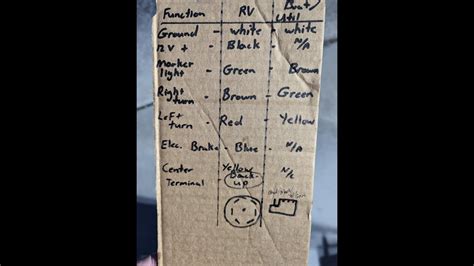 Function RV Boat/Util
Ground - white - white
12V + - Black - N/A
Marker light - Green - Brown
Right turn - Brown - Green
Left turn - Red - Yellow
Elec. Brake - Blue - N/A
Center Terminal - Yellow Back up N/C